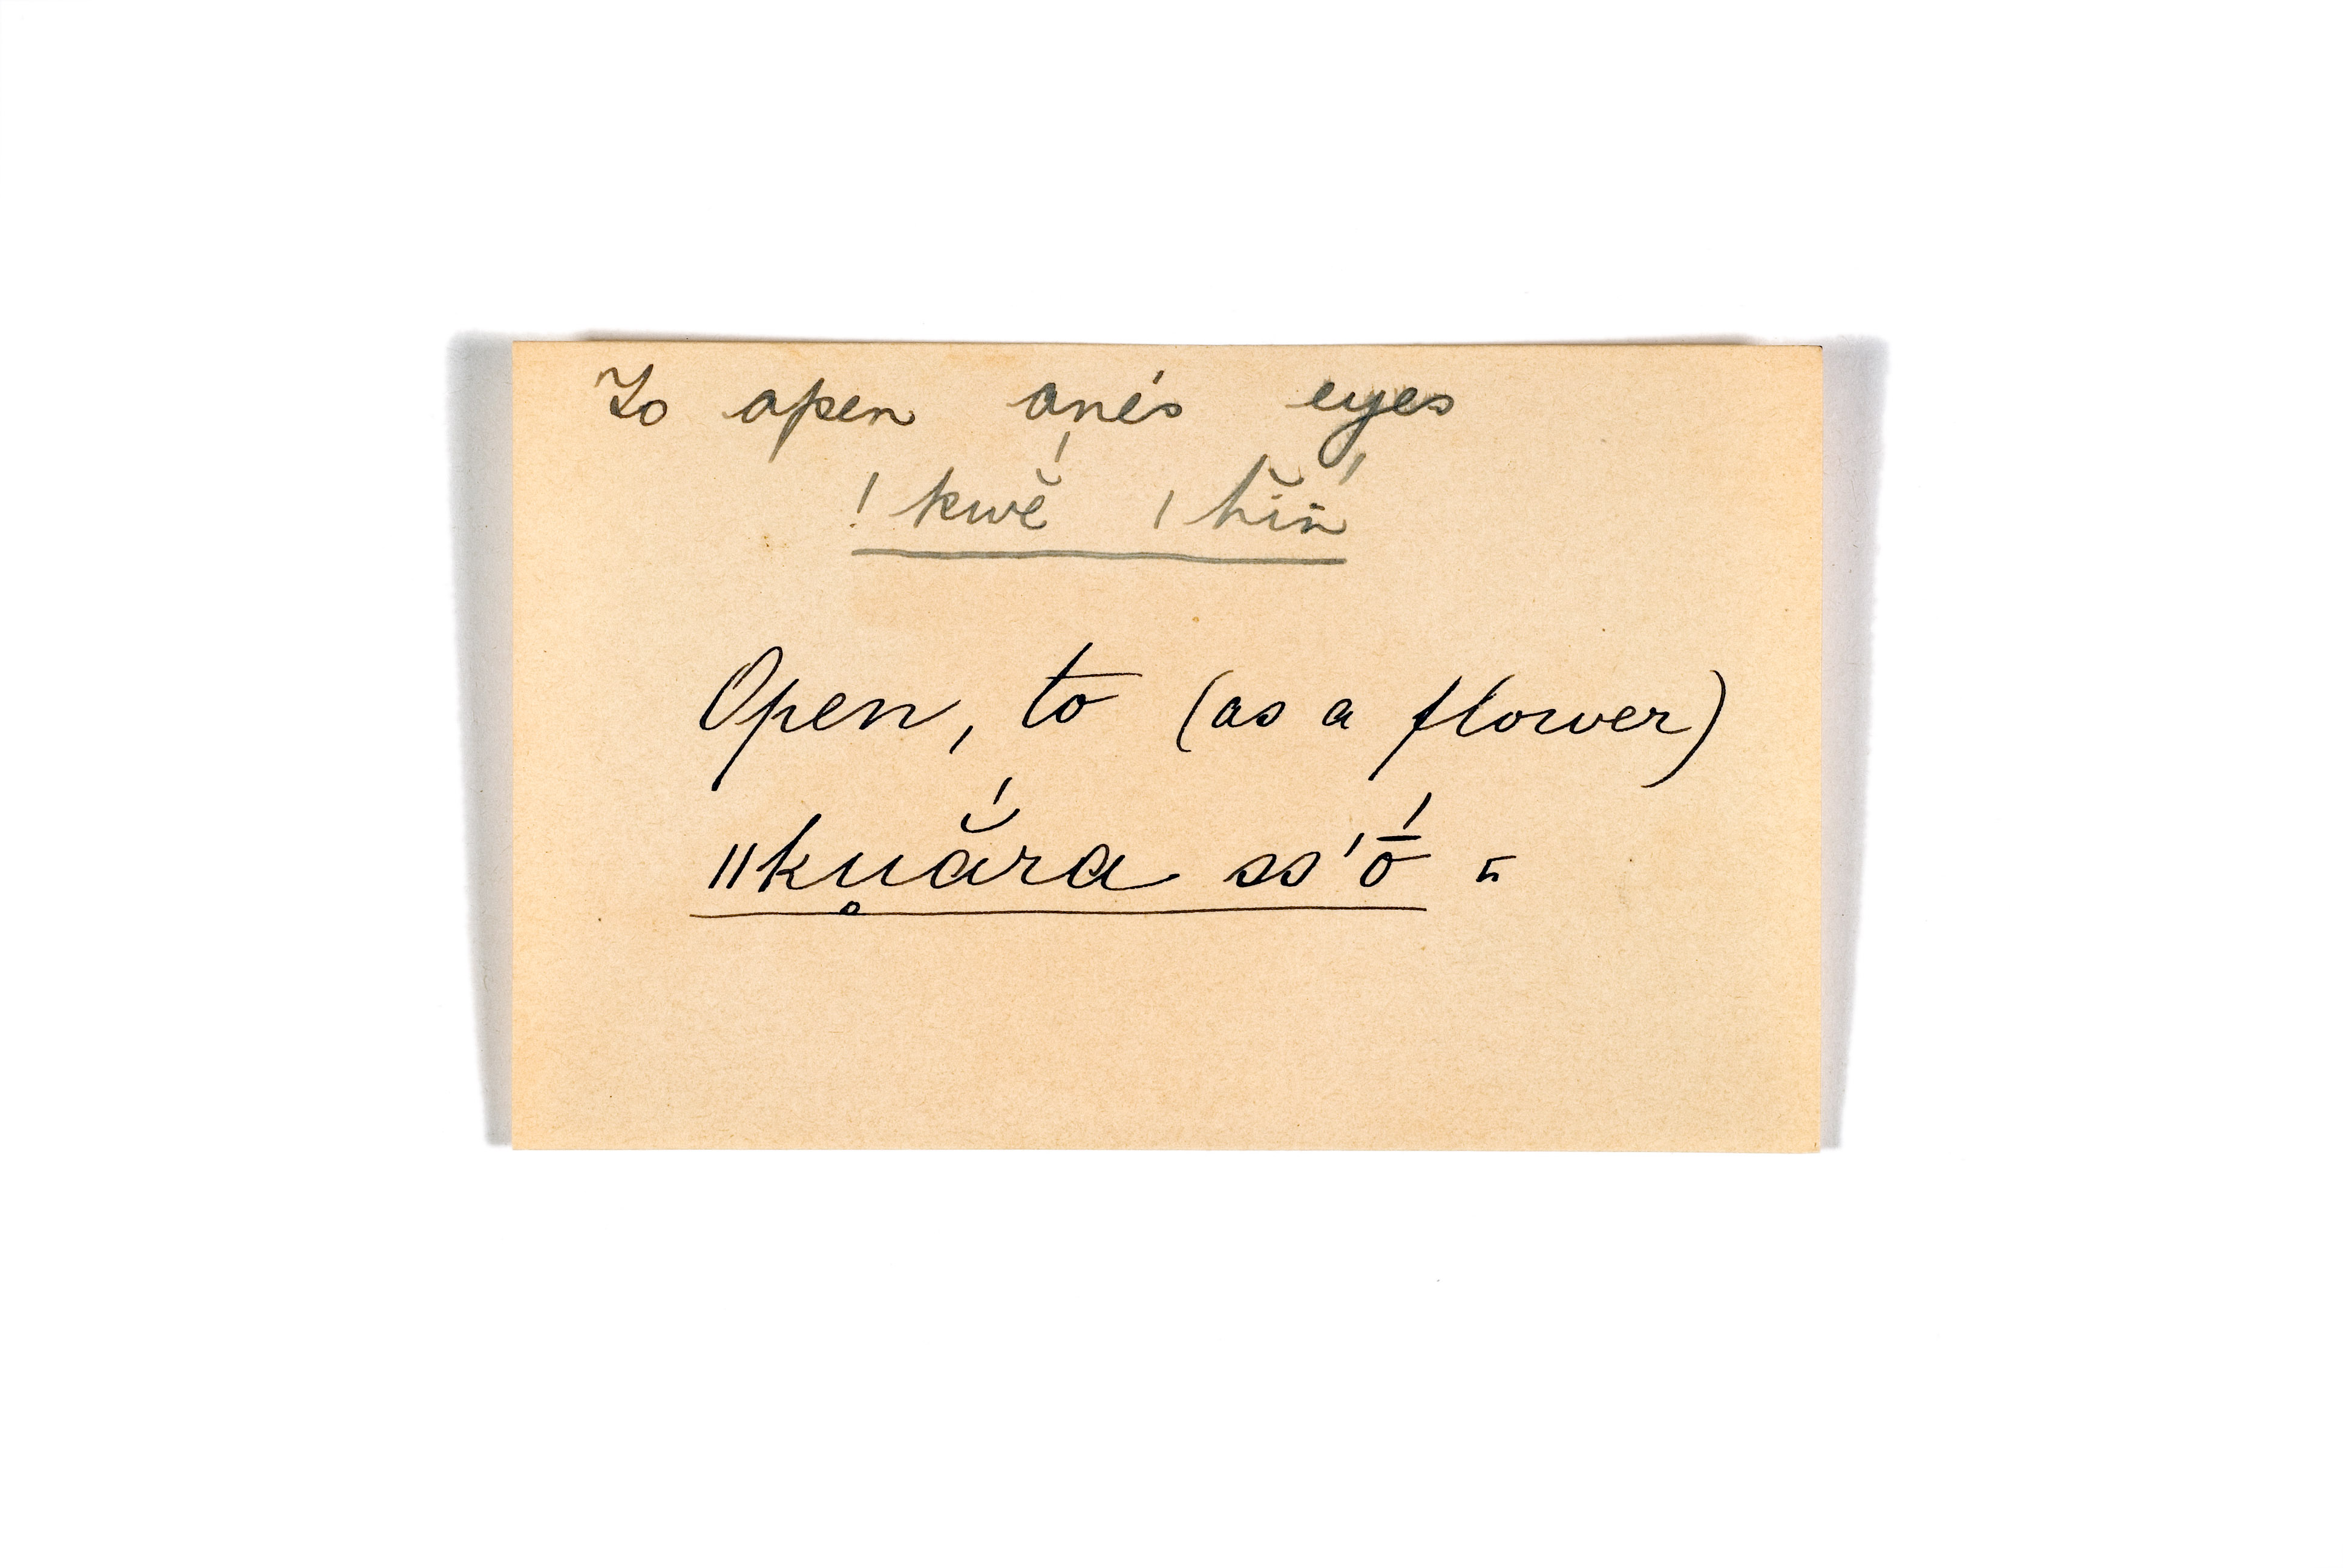 To open one's eyes
! kwĕ́ | hĭń̈
Open, to (as a flower)
‖ku̥ắra ss'ṓ n